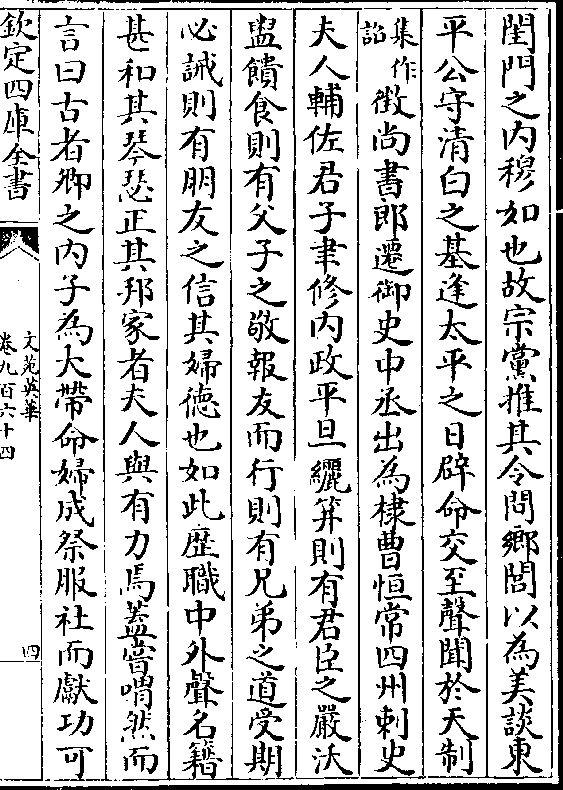 閨門之内穆如也故宗黨推其令問鄉閭以為美談東
平公守清白之基逢太平之日辟命交至聲聞於天制
集作詔徴尚書郎遷御史中丞出為棣曹恒常四州刺史
夫人輔佐君子聿修内政平旦纚筓則有君臣之嚴沃
盥饋食則有父子之敬報友而行則有兄弟之道受期
必誡則有朋友之信其婦徳也如此歴職中外聲名籍
甚和其琴瑟正其邦家者夫人與有力焉蓋嘗喟然而
言曰古者卿之内子為大帶命婦成祭服社而獻功可
欽定四庫全書
文苑英華
卷九百六十四
四